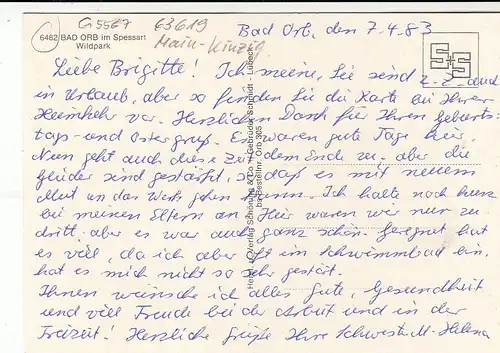 G 5567 63619
Main-Kinzig
6482 BAD ORB im Spessart
Wildpark
Bad Orb, den 7.4.83
Liebe Brigitte! Ich meine, Sie sind z. Z. auch
in Urlaub, aber so finden Sie die Karte bei Ihrer
Heimkehr vor. Herzlichen Dank für Ihren Geburts-
tags- und Ostergruß. Es waren gute Tage hier.
Nun geht auch diese Zeit dem Ende zu, aber die
Glieder sind gestärkt, so daß es mit neuem
Mut an das Werk gehen kann. Ich halte noch kurz
bei meinen Eltern an. Hier waren wir nur zu
dritt, aber es war auch ganz schön. Geregnet hat
es viel, da ich aber oft im Schwimmbad bin,
hat es mich nicht so sehr gestört.
Ihnen wünsche ich alles Gute, Gesundheit
und viel Freude bei der Arbeit und in der
Freizeit! Herzliche Grüße Ihre Schwest. M. Helena
Verlag Schöning & Co. + Gebrüder Schmidt - Lübeck
Bestellnr. Orb 305
S+S